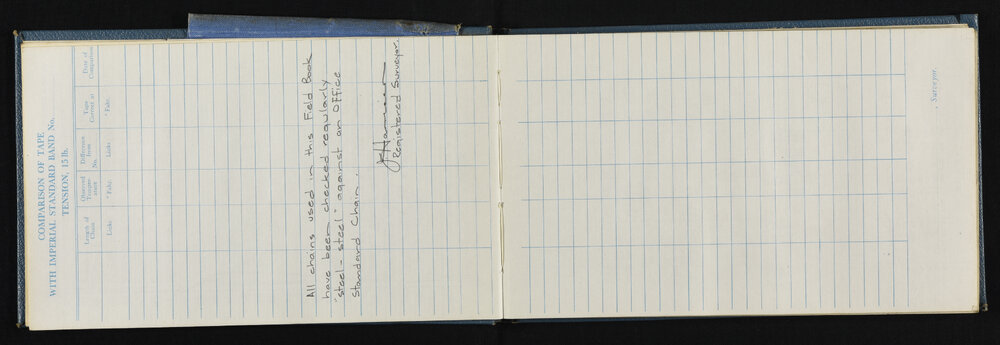 COMPARISON OF TAPE
WITH IMPERIAL STANDARD BAND No.
TENSION, 15 lb.
Length of Chain
Observed Temperature
Difference from No.
Tape Correct at
Date of Comparison
Links
° Fahr.
Links
° Fahr.
All chains used in this Field Book
have been checked regularly
"steel - steel" against an Office
Standard Chain.
Registered Surveyor.
, Surveyor.